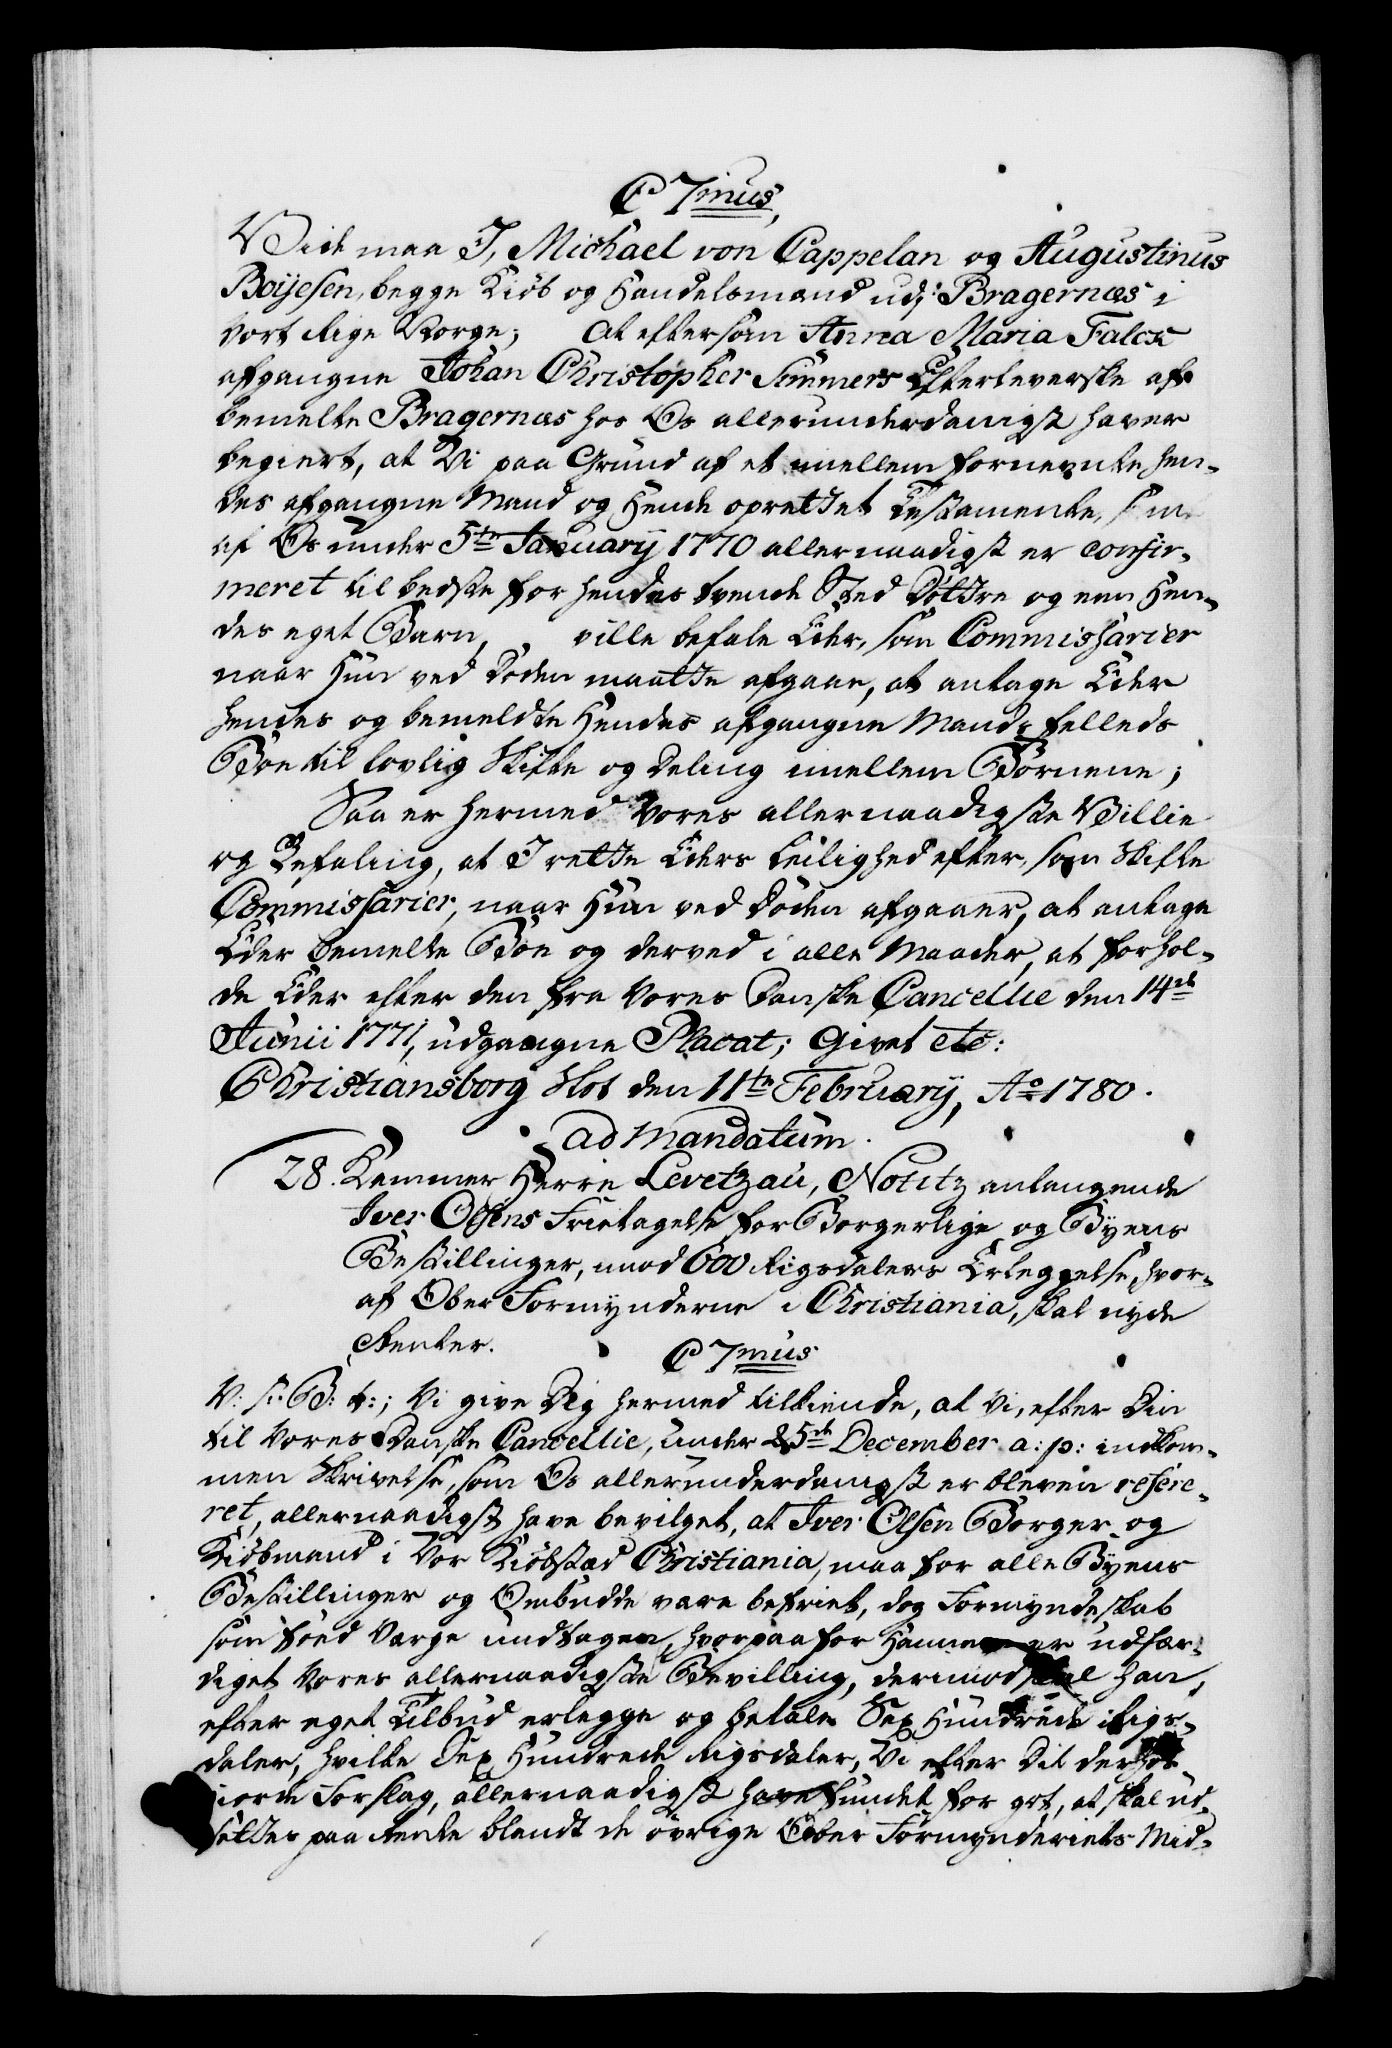 C 7mus,
Vide maa I, Michael von Cappelan og Augustinus
Boijesen, begge Kiøb og Handelsmænd udj Bragernæs i
Vort Rige Norge; At eftersom Anna Maria Falck
afgangne Johan Christopher Simmers Efterleverske af
bemelte Bragernæs hos Os allerunderdanigst haver
begiert, at Vi paa Grund af et imellem fornevnte hen-
des afgangne Mand og Hende oprettet Testamente, som
af Os under 5te January 1770 allernaadigst er confir-
meret til bedste for hendes tvende Sted Døttre og een Hen-
des eget Barn, ville befale Eder, som Commissarier
naar Hun ved Døden maatte afgaae, at antage Eder
hendes og bemeldte Hendes afgangne Mands felleds
Boe til lovlig Skifte og Deling imellem Børnene;
Saa er hermed Vores allernaadigste Villie
og Befaling, at I rette Eders Leilighed efter, som Skifte
Commissarier, naar Hun ved Døden afgaaer, at antage
Eder bemelte Boe og derved i alle Maader, at forhol-
de Eder efter den fra Vores Danske Cancellie den 14de
Junii 1771, udgangne Placat; Givet etc:
Christiansborg Slot den 11te February, Ao 1780.
ad Mandatum.
28. Kammer Herre Levetzau, Notitz anlangende
Iver Olsens Fritagelse for Borgerlige og Byens
Bestillinger, mod 600 Rigsdalers Erleggelse, hvor-
af Ober Formynderne i Christiania, skal nyde
Renter.
C 7mus
V: s: B: t:; Vi give Dig hermed tilkiende, at Vi, efter Din
til Vores Danske Cancellie, under 25de December a: p: indkom-
men Skrivelse, som Os allerunderdanigst er bleven refere-
ret, allernaadigst have bevilget, at Iver Olsen Borger og
Kiøbmand i Vor Kiøbstæd Christiania, maa for alle Byens
Bestillinger og Ombudde være befriet, dog Formyndeskab
som fød Værge undtagen, hvorpaa for Hannem er udfær-
diget Vores allernaadigste Bevilling, derimod skal han,
efter eget Tilbud erlegge og betale Sex Hundrede Rigs-
daler, hvilke Sex Hundrede Rigsdaler, Vi efter Dit derhos
giorte Forslag, allernaadigst have fundet for got, at skal ud-
settes paa Rente blandt de øvrige Ober Formynderiets Mid-